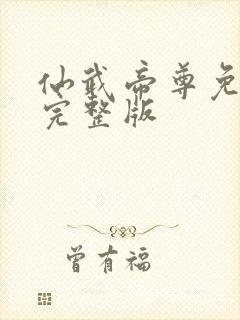 仙武帝尊免
完整版
曾有福